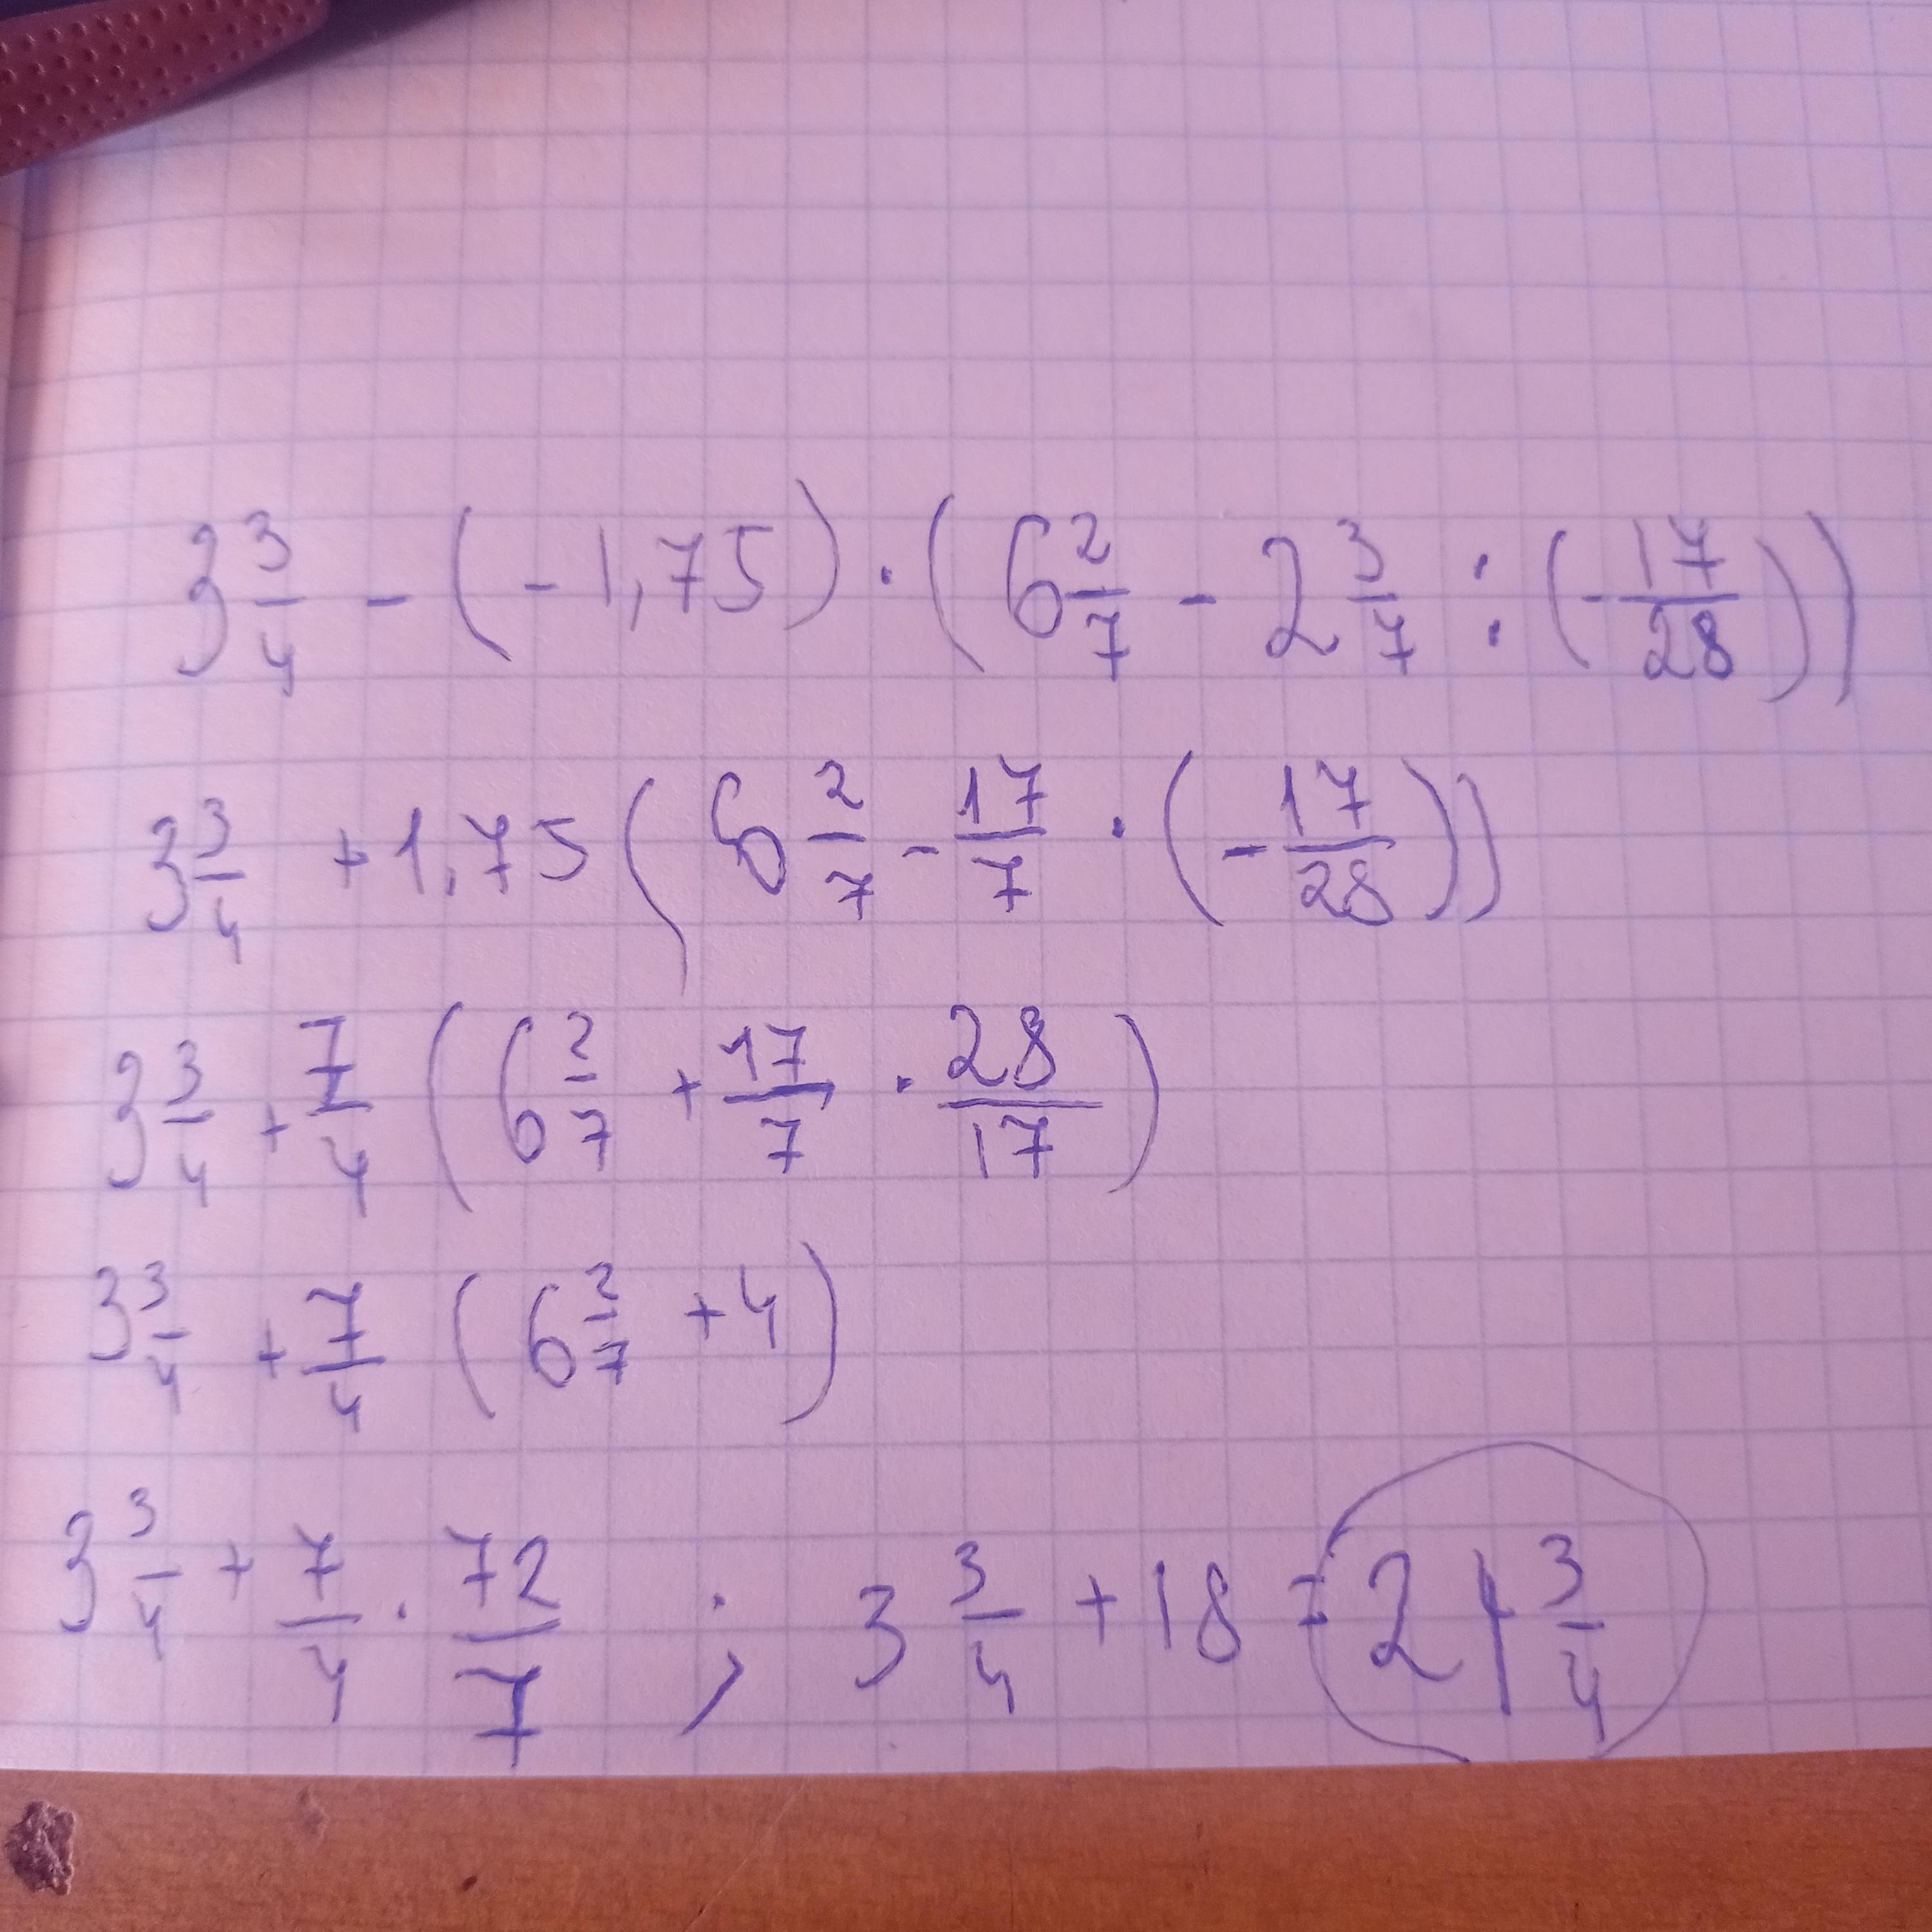 3 3/4 - (-1,75) · (6 2/7 - 2 3/7 : (-17/28))
3 3/4 + 1,75 (6 2/7 - 17/7 · (-17/28))
3 3/4 + 7/4 (6 2/7 + 17/7 · 28/17)
3 3/4 + 7/4 (6 2/7 + 4)
3 3/4 + 7/4 · 72/7 ; 3 3/4 + 18 = 21 3/4